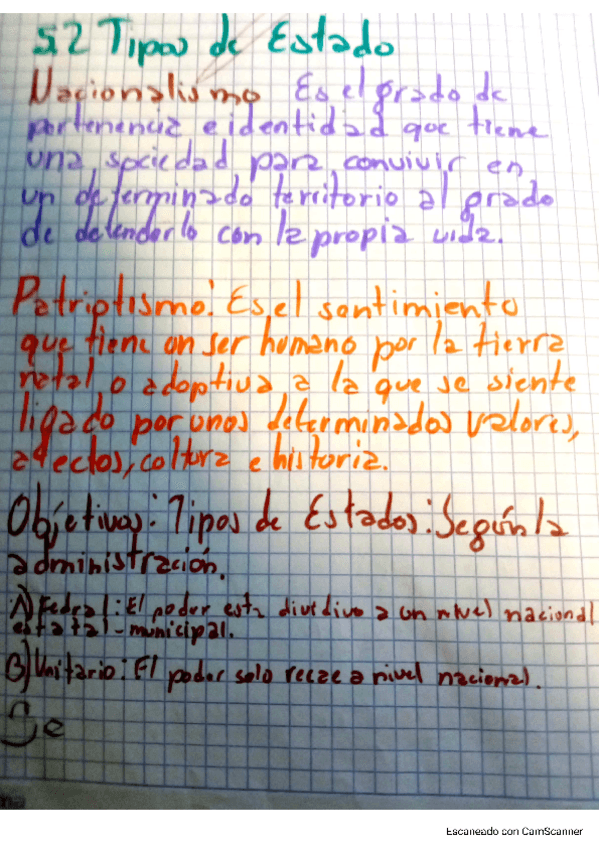 5.2 Tipos de Estado
Nacionalismo Es el grado de
pertenencia e identidad que tiene
una sociedad para convivir en
un determinado territorio al grado
de defenderlo con la propia vida.
Patriotismo: Es el sentimiento
que tiene un ser humano por la tierra
natal o adoptiva a la que se siente
ligado por unos determinados valores,
afectos, cultura e historia.
Objetivos: Tipos de Estados: Según la
administración.
A) Fedral: El poder esta dividivo a un nivel nacional
estatal-municipal.
B) Unitario: El poder solo recae a nivel nacional.
Se
Escaneado con CamScanner